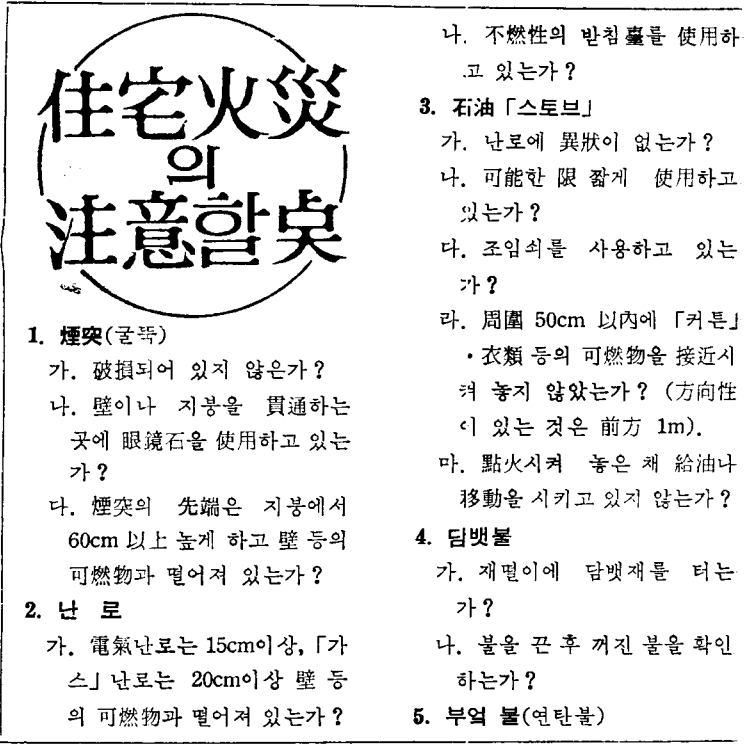 住宅火災
의
注意할 点
1. 煙突(굴뚝)
가. 破損되어 있지 않은가?
나. 壁이나 지붕을 貫通하는
곳에 眼鏡石을 使用하고 있는
가?
다. 煙突의 先端은 지붕에서
60cm 以上 높게 하고 壁 등의
可燃物과 떨어져 있는가?
2. 난 로
가. 電氣난로는 15cm이상, 「가
스」 난로는 20cm이상 壁 등
의 可燃物과 떨어져 있는가?
나. 不燃性의 받침臺를 使用하
고 있는가?
3. 石油 「스토브」
가. 난로에 異狀이 없는가?
나. 可能한 限 짧게 使用하고
있는가?
다. 조임쇠를 사용하고 있는
가?
라. 周圍 50cm 以內에 「커튼」
・衣類 등의 可燃物을 接近시
켜 놓지 않았는가? (方向性
이 있는 것은 前方 1m).
마. 點火시켜 놓은 채 給油나
移動을 시키고 있지 않는가?
4. 담뱃불
가. 재떨이에 담뱃재를 터는
가?
나. 불을 끈 후 꺼진 불을 확인
하는가?
5. 부엌 불(연탄불)